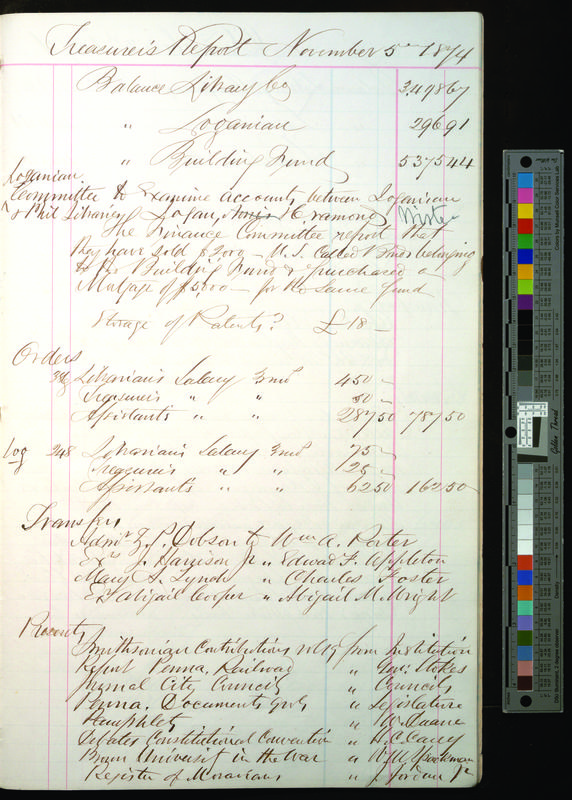 Treasurer's Report November 5th 1874
Balance Library Co 3,498 67
" Loganian 296 91
" Building Fund 5375 44
Loganian
Committee to Examine accounts between Loganian
& Phil Library Logan, Cramond, Wister
The Finance Committee report that
they have sold $5,000 - U.S. Called Bonds belonging
to the Building Fund & purchased a
Mortgage of $5,000 - for the same fund
Storage of Patents? £18 -
Orders
Librarian's Salary 3 mos 450 -
Treasurer's " " 50 -
Assistants " " 287 50 787 50
Log 248 Librarian's Salary 3 mos 75 -
Treasurer's " " 25 -
Assistants " " 62 50 162 50
Transfers
Admr Z. P. Dobson to Wm A. Porter
Exrs J. Harrison Jr " Edward F. Appleton
Mary S. Lynch " Charles Foster
Ex Abigail Cooper " Abigail M. Wright
Presents
Smithsonian Contributions vol 19 from Institution
Report Penna. Railroad " Stokes
Journal City Councils " Councils
Penna. Documents " Legislature
Pamphlets " W. Duane
Debates Constitutional Convention " H. C. Carey
Brown University in the War " Wm Brockman
Register of Moravians " J. Jordan Jr